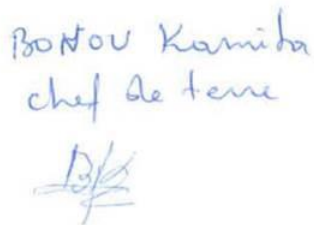 BONOU Kamita
chef de terre